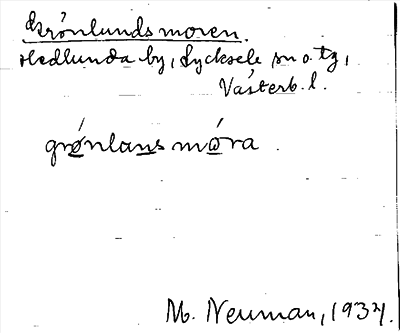 Grönlundsmoren.
Hedlunda by, Lycksele sn o. tg,
Västerb. l.
grǿnlans mǿra.
M. Neuman, 1937.